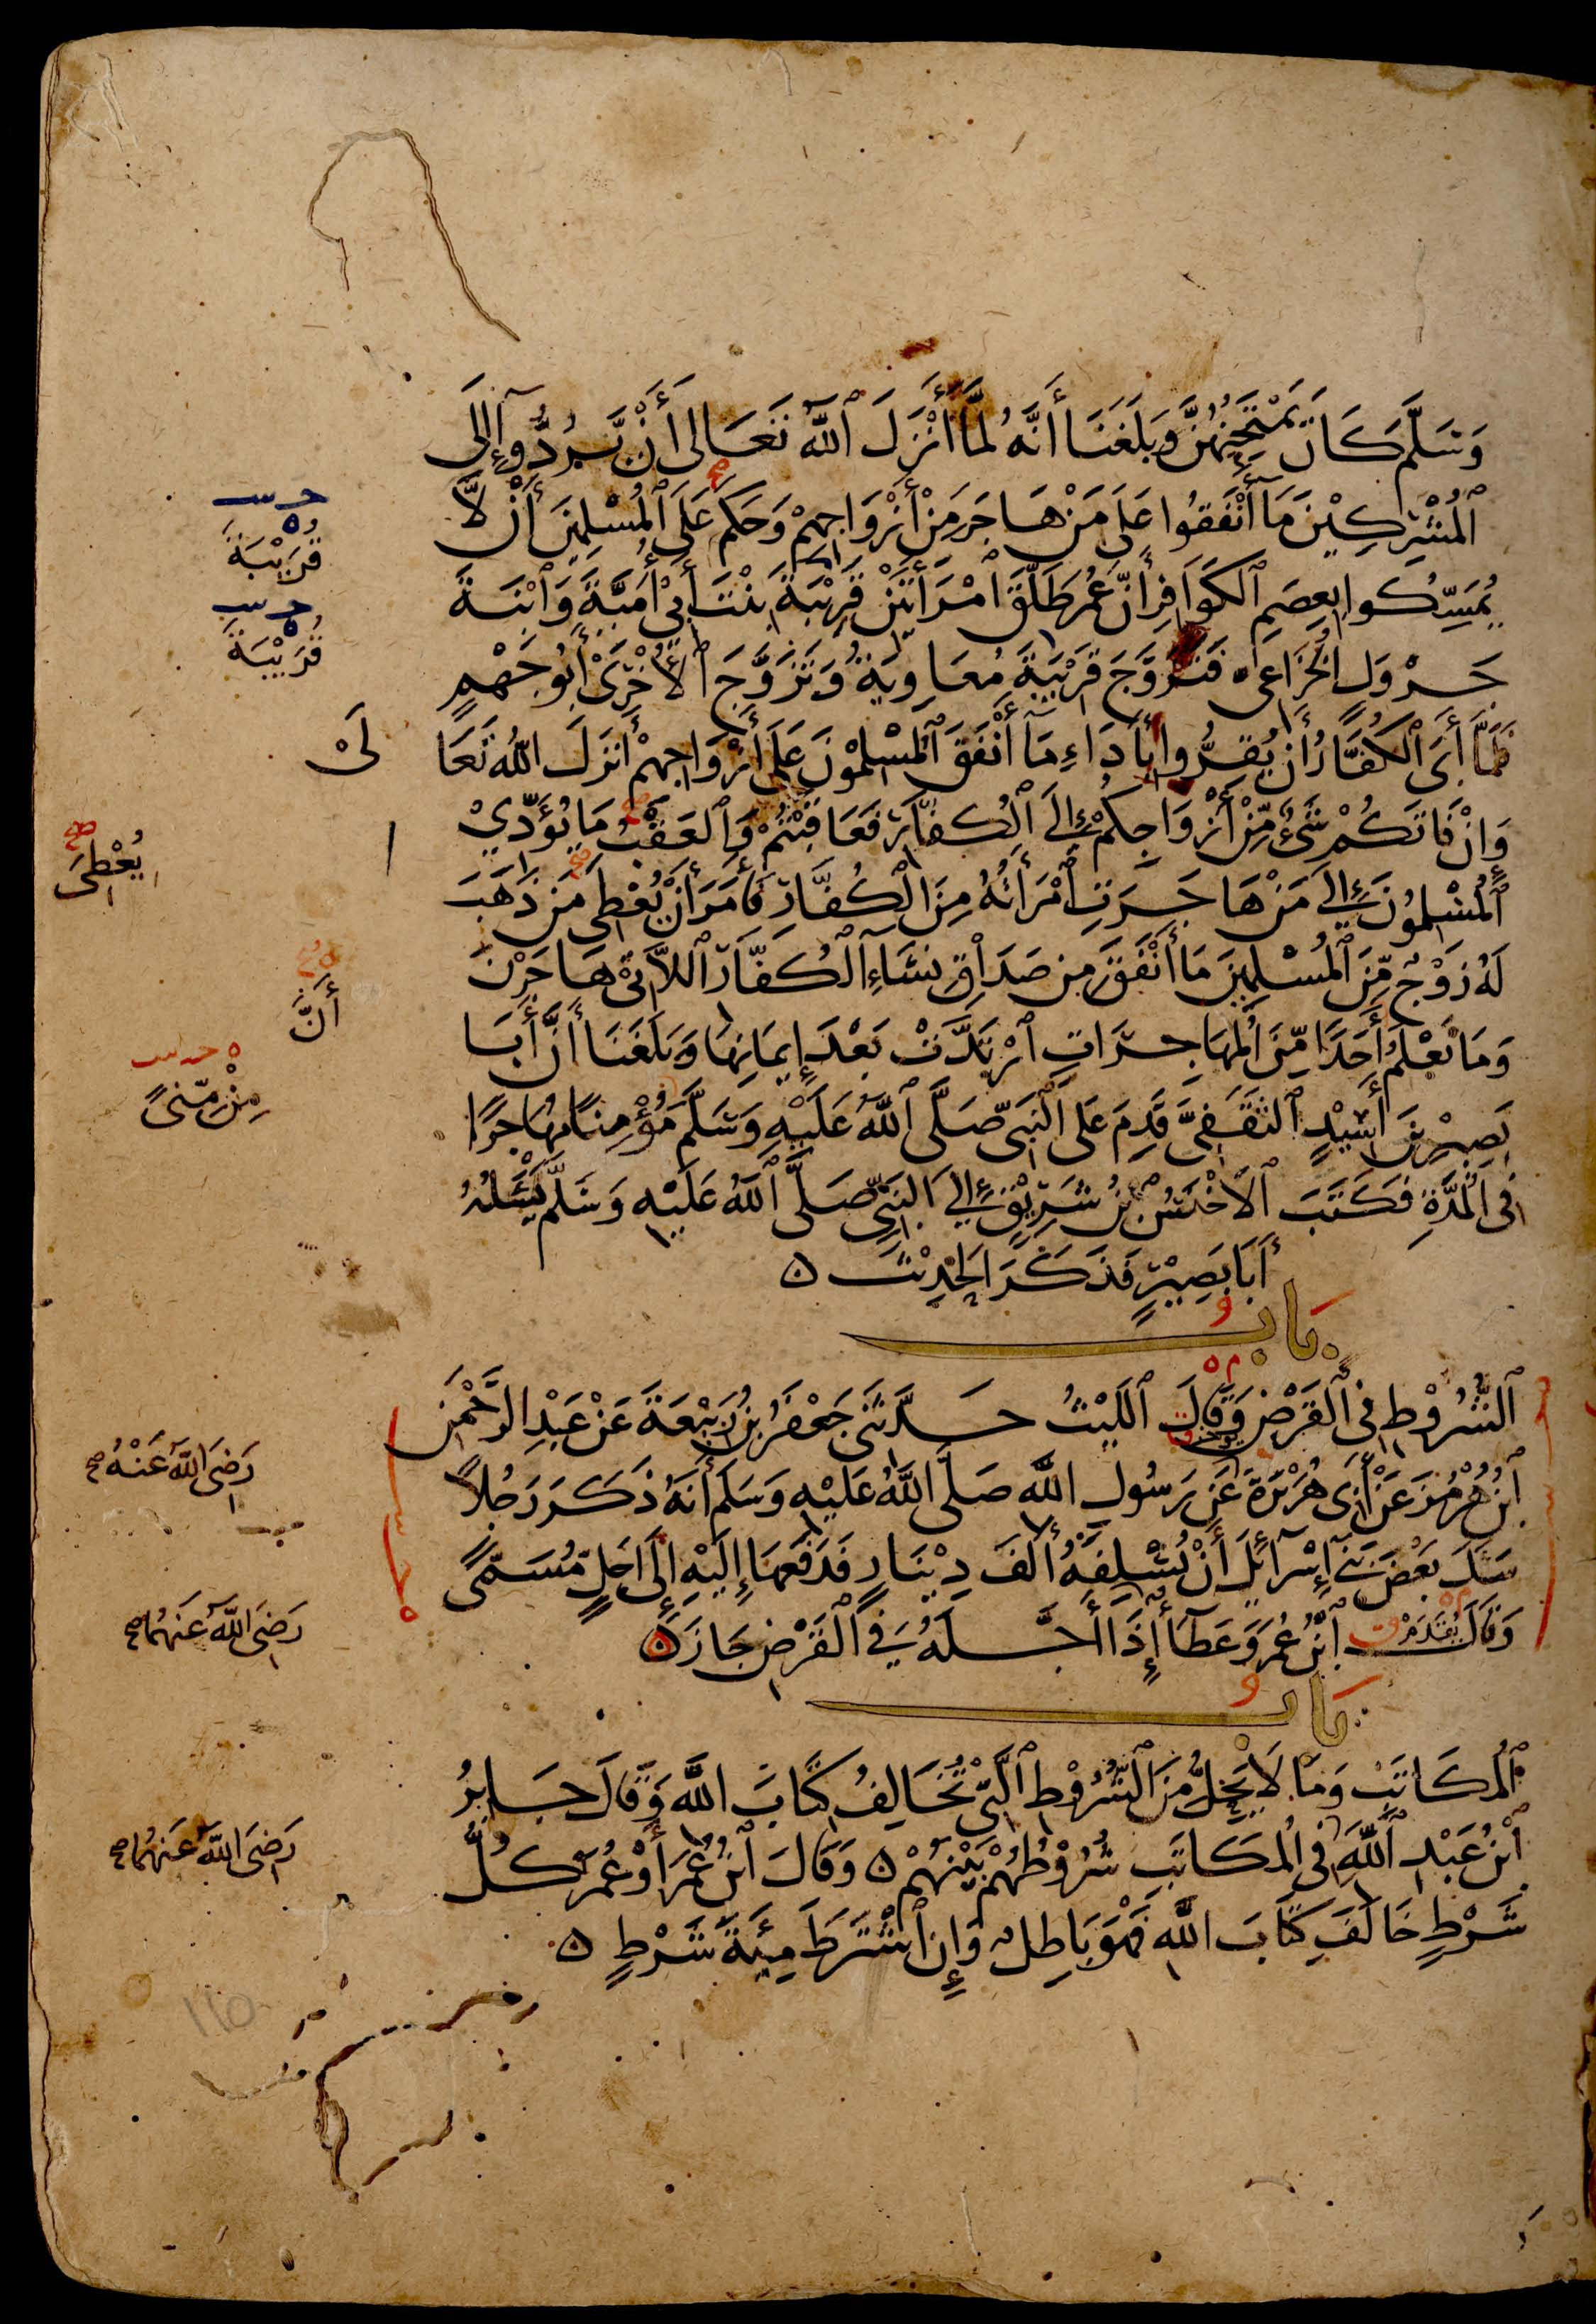 وَسَلَّمَ كَانَ يَمْتَحِنُهُنَّ وَبَلَغَنَا أَنَّهُ لَمَّا أَنْزَلَ اللَّهُ تَعَالَى أَنْ يَرُدُّوا إِلَى
الْمُشْرِكِيْنَ مَا أَنْفَقُوا عَلَى مَنْ هَاجَرَ مِنْ أَزْوَاجِهِمْ وَحَكَمَ عَلَى الْمُسْلِمِيْنَ أَنْ لَّا
يُمَسِّكُوا بِعِصَمِ الْكَوَافِرِ أَنَّ عُمَرَ طَلَّقَ امْرَأَتَيْنِ قَرِيْبَةَ بِنْتَ أَبِي أُمَيَّةَ وَابْنَةَ
جَرْوَلٍ الْخُزَاعِيِّ فَتَزَوَّجَ قَرِيْبَةَ مُعَاوِيَةُ وَتَزَوَّجَ الْأُخْرَى أَبُو جَهْمٍ
فَلَمَّا أَبَى الْكُفَّارُ أَنْ يُقِرُّوا بِأَدَاءِ مَا أَنْفَقَ الْمُسْلِمُوْنَ عَلَى أَزْوَاجِهِمْ أَنْزَلَ اللَّهُ تَعَا
لَى
وَإِنْ فَاتَكُمْ شَيْءٌ مِّنْ أَزْوَاجِكُمْ إِلَى الْكُفَّارِ فَعَاقَبْتُمْ وَالْعَقْبُ مَا يُؤَدِّيْ
الْمُسْلِمُوْنَ إِلَى مَنْ هَاجَرَتِ امْرَأَتُهُ مِنَ الْكُفَّارِ فَأَمَرَ أَنْ يُعْطِيَ مَنْ ذَهَبَ
لَهُ زَوْجٌ مِّنَ الْمُسْلِمِيْنَ مَا أَنْفَقَ مِنْ صَدَاقِ نِسَاءِ الْكُفَّارِ اللَّاتِيْ هَاجَرْنَ
وَمَا نَعْلَمُ أَحَدًا مِّنَ الْمُهَاجِرَاتِ ارْتَدَّتْ بَعْدَ إِيْمَانِهَا وَبَلَغَنَا أَنَّ أَبَا
بَصِيْرِ بْنَ أَسِيْدٍ الثَّقَفِيَّ قَدِمَ عَلَى النَّبِيِّ صَلَّى اللَّهُ عَلَيْهِ وَسَلَّمَ مُؤْمِنًا مُهَاجِرًا
فِي الْمُدَّةِ فَكَتَبَ الْأَخْنَسُ بْنُ شَرِيْقٍ إِلَى النَّبِيِّ صَلَّى اللَّهُ عَلَيْهِ وَسَلَّمَ يَسْئَلُهُ
أَبَا بَصِيْرٍ فَذَكَرَ الْحَدِيْثَ ۝
بَابُ
الشُّرُوْطِ فِي الْقَرْضِ وَقَالَ اللَّيْثُ حَدَّثَنِي جَعْفَرُ بْنُ رَبِيْعَةَ عَنْ عَبْدِ الرَّحْمَنِ
ابْنِ هُرْمُزَ عَنْ أَبِي هُرَيْرَةَ عَنْ رَسُولِ اللَّهِ صَلَّى اللَّهُ عَلَيْهِ وَسَلَّمَ أَنَّهُ ذَكَرَ رَجُلًا
سَئَلَ بَعْضَ بَنِي إِسْرَآئِيْلَ أَنْ يُسْلِفَهُ أَلْفَ دِيْنَارٍ فَدَفَعَهَا إِلَيْهِ إِلَى أَجَلٍ مُسَمًّى
وَقَالَ ابْنُ عُمَرَ وَعَطَآءٌ إِذَا أَجَّلَهُ فِي الْقَرْضِ جَازَ ۝
بَابُ
الْمُكَاتَبِ وَمَا لَا يَحِلُّ مِنَ الشُّرُوْطِ الَّتِيْ تُخَالِفُ كِتَابَ اللَّهِ وَقَالَ جَابِرُ
ابْنُ عَبْدِ اللَّهِ فِي الْمُكَاتَبِ شُرُوْطُهُمْ بَيْنَهُمْ ۝ وَقَالَ ابْنُ عُمَرَ أَوْ عُمَرُ كُلُّ
شَرْطٍ خَالَفَ كِتَابَ اللَّهِ فَهُوَ بَاطِلٌ وَإِنِ اشْتَرَطَ مِئَةَ شَرْطٍ ۝
قُرَيْبَةَ
قُرَيْبَةَ
يُعْطَى
أَنَّ
مِنْ مِنًى
رَضِيَ اللَّهُ عَنْهُ
رَضِيَ اللَّهُ عَنْهُمَا
رَضِيَ اللَّهُ عَنْهُمَا